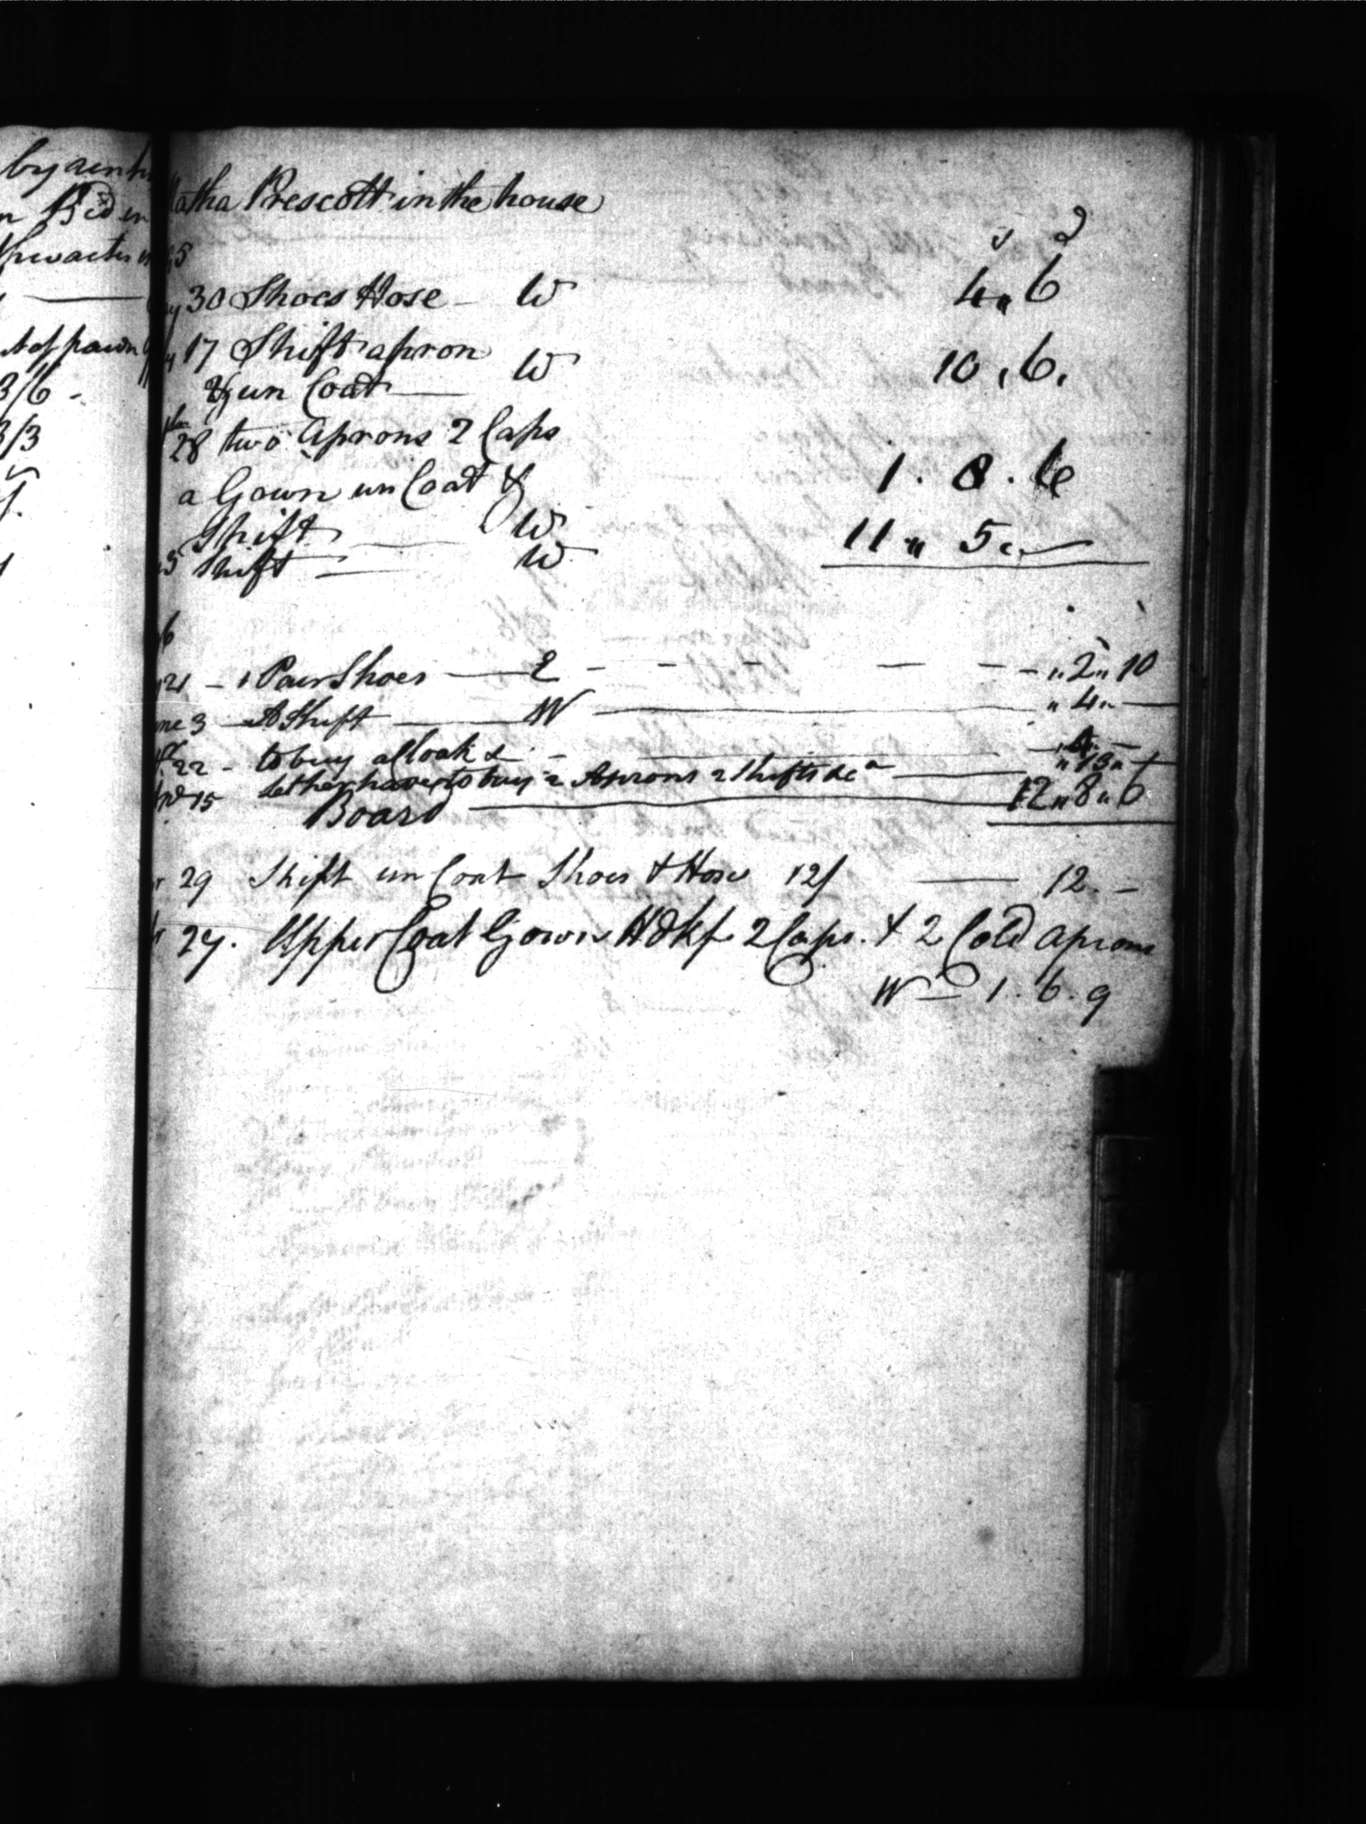 by
Bed in
of pawn
3/6 -
3/3
atha Prescott in the house
s d
30 Shoes Hose - W 4 " 6
17 Shift apron
& un Coat — W 10 , 6 ,
28 two Aprons 2 Caps
a Gown un Coat & 1 . 8 . 6
Shift — W
Shift — W 11 " 5 " —
6
21 - 1 Pair Shoes — E - - - — - - " 2 " 10
3 — A Shift — W — " 4 " —
22 - to buy a Cloak &
15 Let her have to buy 2 Aprons 2 Shifts &c a — " 13 " —
Board — £2 " 8 " 6
29 Shift un Coat Shoes & Hose 12/ — 12 . -
27 . Upper Coat Gown Hdkf 2 Caps . & 2 Cold Aprons
W — 1 . 6 . 9